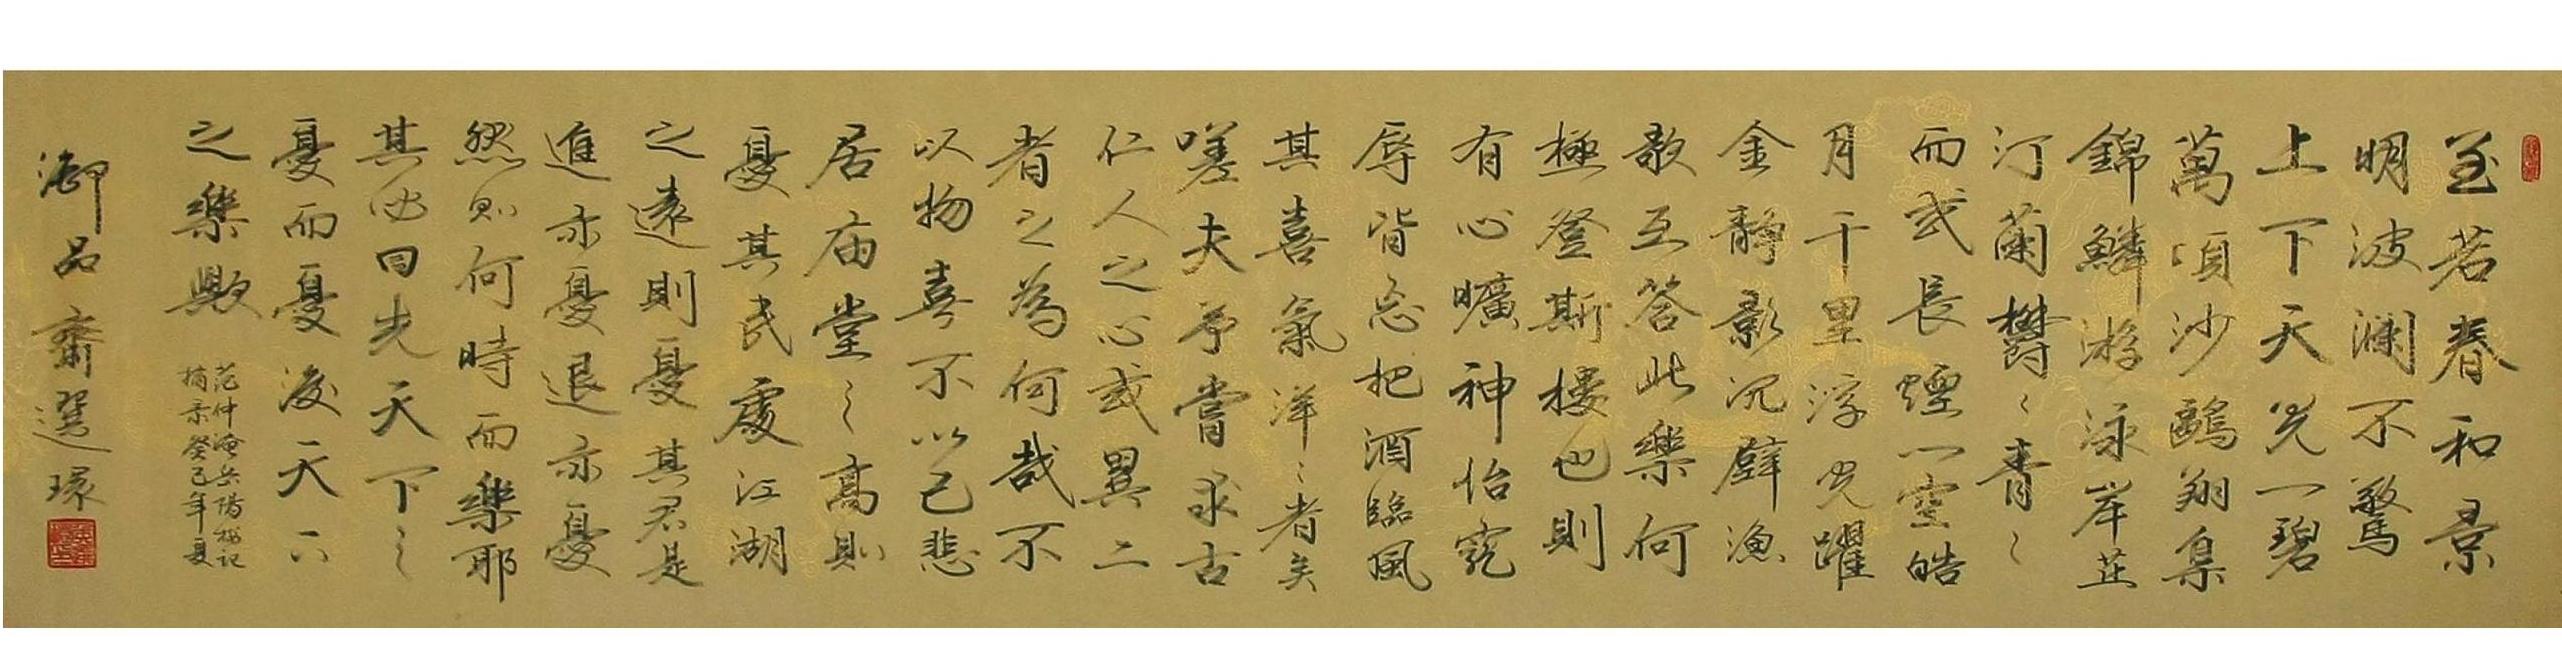 至若春和景
明波瀾不驚
上下天光一碧
萬頃沙鷗翔集
錦鱗游泳岸芷
汀蘭欝〻青〻
而或長煙一空皓
月千里浮光躍
金静影沉璧漁
歌互答此樂何
極登斯樓也則
有心曠神怡寵
辱皆忘把酒臨風
其喜氣洋〻者矣
嗟夫予嘗求古
仁人之心或異二
者之為何哉不
以物喜不以己悲
居庙堂之高則
憂其民處江湖
之遠則憂其君是
進亦憂退亦憂
然則何時而樂耶
其必曰先天下之
憂而憂後天下
之樂歟
范仲淹岳陽楼記
摘录癸巳年夏
御品齋選環